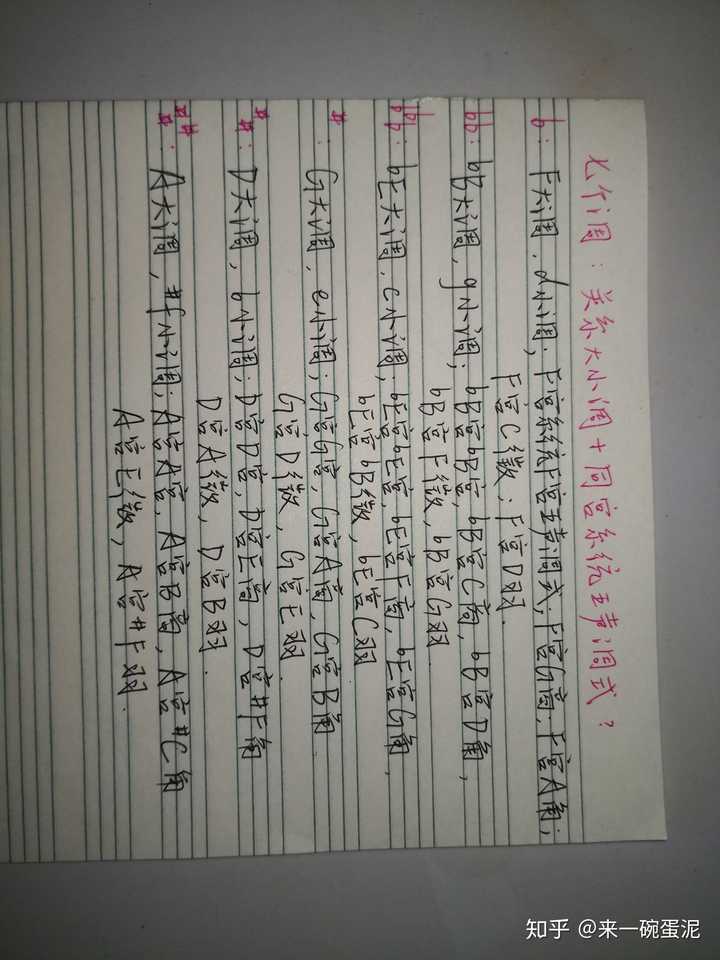 七个调：关系大小调+同宫系统五声调式？
b：F大调.d小调.F宫系统F宫五声调式;F宫G商.F宫A角;
F宫C徵.F宫D羽.
bb：bB大调,g小调;bB宫bB宫,bB宫C商,bB宫D角,
bB宫F徵,bB宫G羽.
bbb：bE大调.c小调;bE宫bE宫,bE宫F商,bE宫G角,
bE宫bB徵,bE宫C羽
#：G大调,e小调;G宫G宫,G宫A商,G宫B角.
G宫D徵,G宫E羽.
##：D大调,b小调;D宫D宫,D宫E商,D宫#F角
D宫A徵,D宫B羽.
###：A大调,#f小调;A宫A宫,A宫B商,A宫#C角
A宫E徵,A宫#F羽.
知乎 @来一碗蛋泥